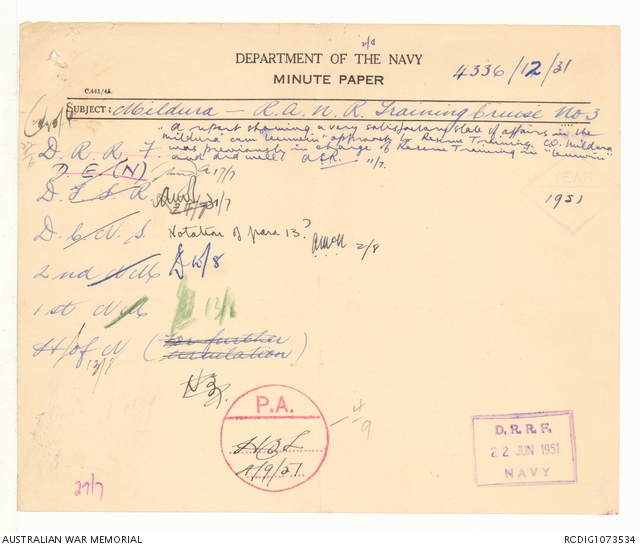 2/8
DEPARTMENT OF THE NAVY
MINUTE PAPER
4336/12/31
C.441/48.
SUBJECT: Mildura — R.A.N.R. Training Cruise No 3
"A report showing a very satisfactory state of affairs in the
Mildura cum "Leeuwin" approach to Reserve Training. C.O. Mildura
was previously in charge of Reserve Training in "Leeuwin"
and did well! 11/7
D.R.R.F.
D.E.(N) 17/7
D.F.S.R 24/7 31/7
1951
D.C.N.S. Notation of para 13? 2/8
2nd NM 10/8
1st NM 13/8
H/of N (for further
circulation)
13/8
P.A.
4/9/51
4/9
D.R.R.F.
22 JUN 1951
NAVY
27/7
AUSTRALIAN WAR MEMORIAL
RCDIG1073534